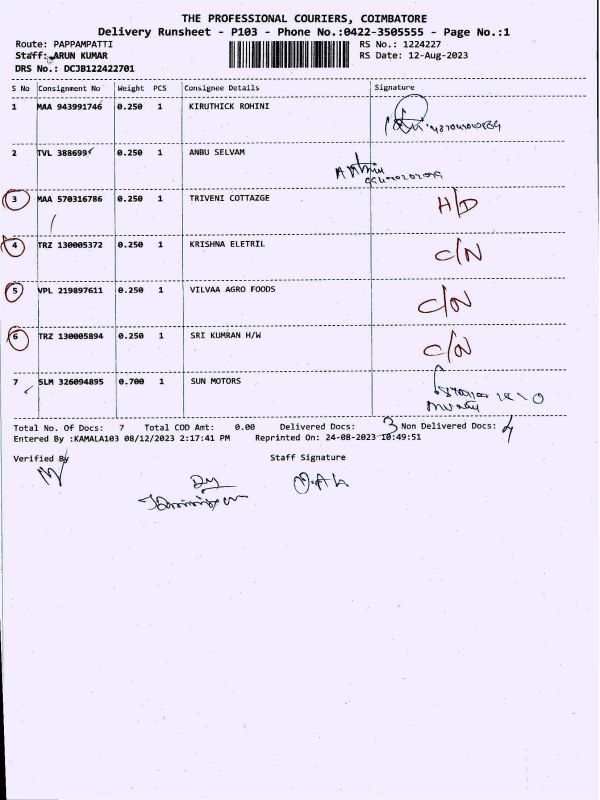 THE PROFESSIONAL COURIERS, COIMBATORE
Delivery Runsheet - P103 - Phone No.:0422-3505555 - Page No.:1
Route: PAPPAMPATTI RS No.: 1224227
Staff: ARUN KUMAR RS Date: 12-Aug-2023
DRS No.: DCJB122422701
S No Consignment No Weight PCS Consignee Details Signature
1 MAA 943991746 0.250 1 KIRUTHICK ROHINI
2 TVL 388699 0.250 1 ANBU SELVAM
3 MAA 570316786 0.250 1 TRIVENI COTTAZGE H/D
4 TRZ 130005372 0.250 1 KRISHNA ELETRIL C/N
5 VPL 219897611 0.250 1 VILVAA AGRO FOODS C/N
6 TRZ 130005894 0.250 1 SRI KUMRAN H/W C/N
7 SLM 326094895 0.700 1 SUN MOTORS
Total No. Of Docs: 7 Total COD Amt: 0.00 Delivered Docs: 3 Non Delivered Docs: 4
Entered By :KAMALA103 08/12/2023 2:17:41 PM Reprinted On: 24-08-2023 10:49:51
Verified By Staff Signature